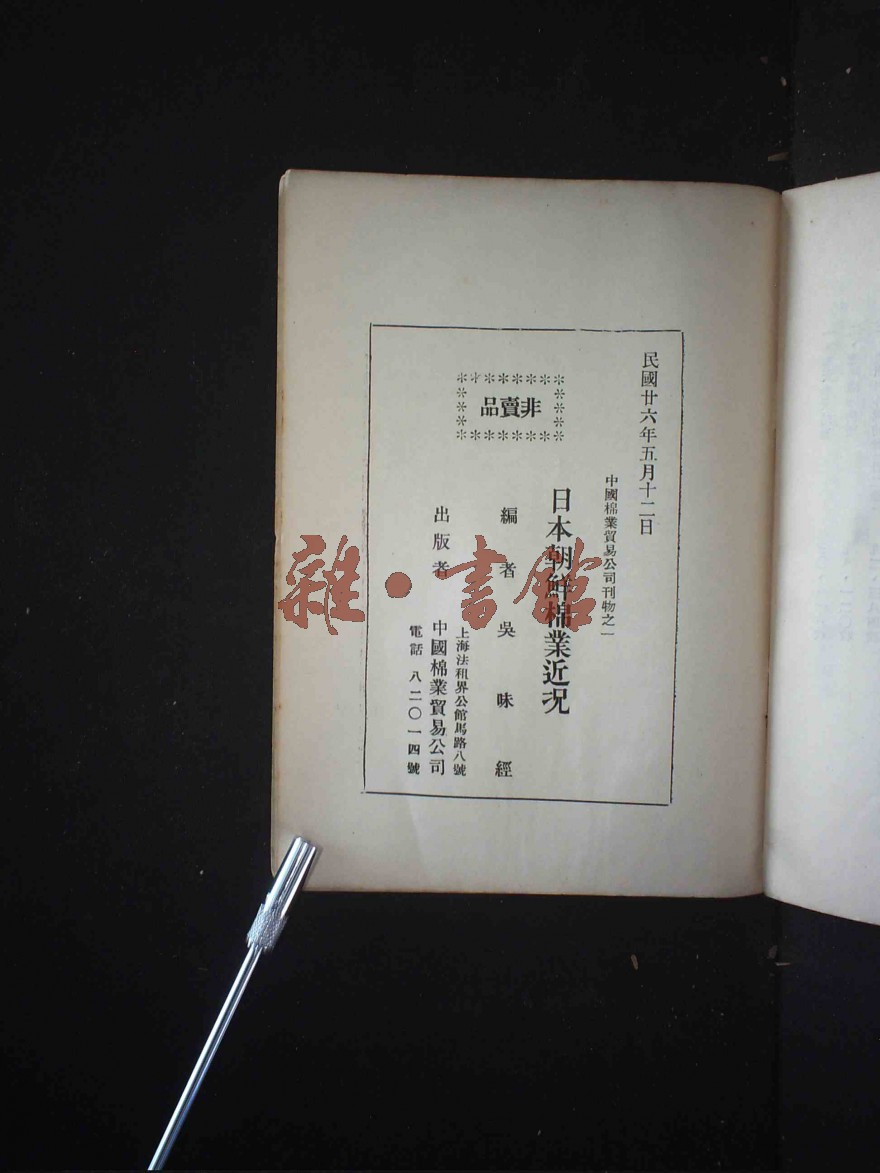 民國廿六年五月十二日
中國棉業貿易公司刊物之一
日本朝鮮棉業近况
非賣品
編者 吳味經
出版者 中國棉業貿易公司
上海法租界公館馬路八號
電話 八二〇一四號
雜·書館